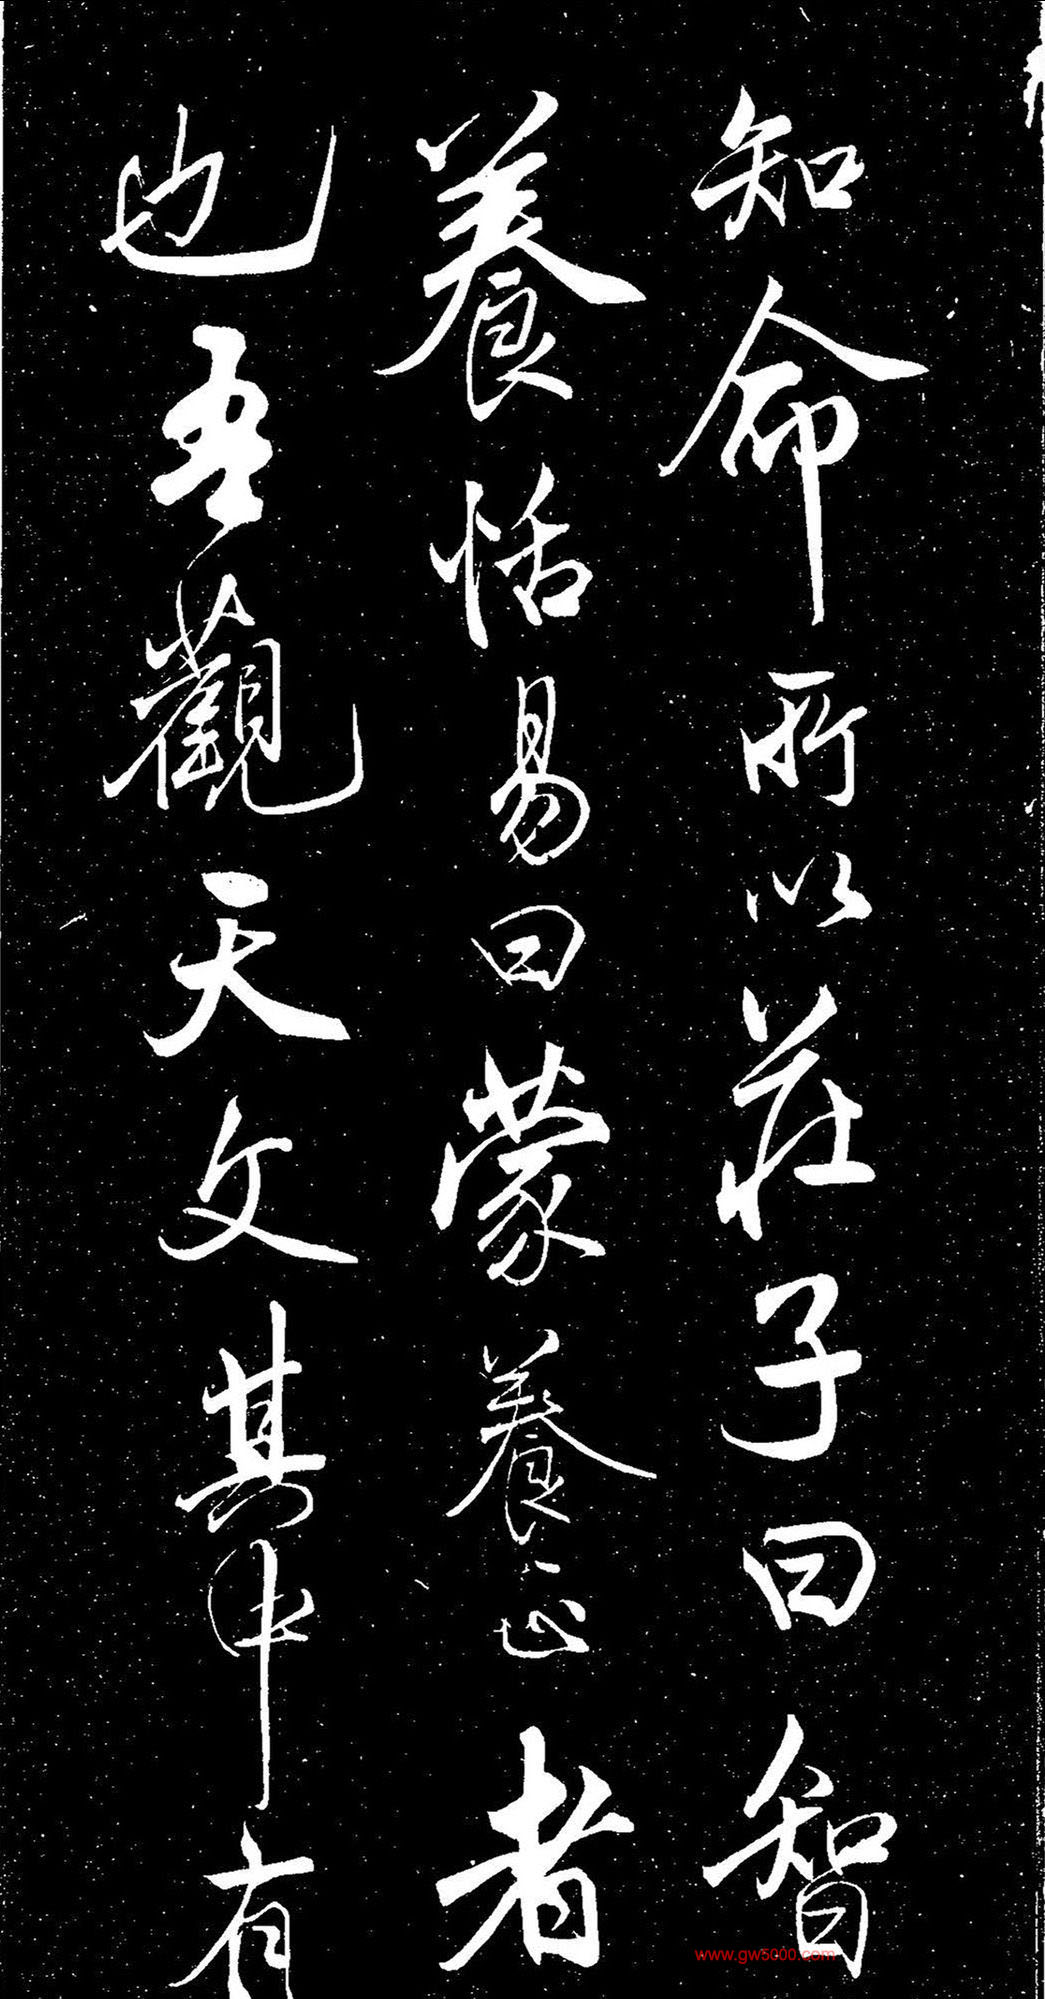 知命所以莊子曰智
養恬易曰蒙養正者
也吾觀天文其中有
www.gw5000.com